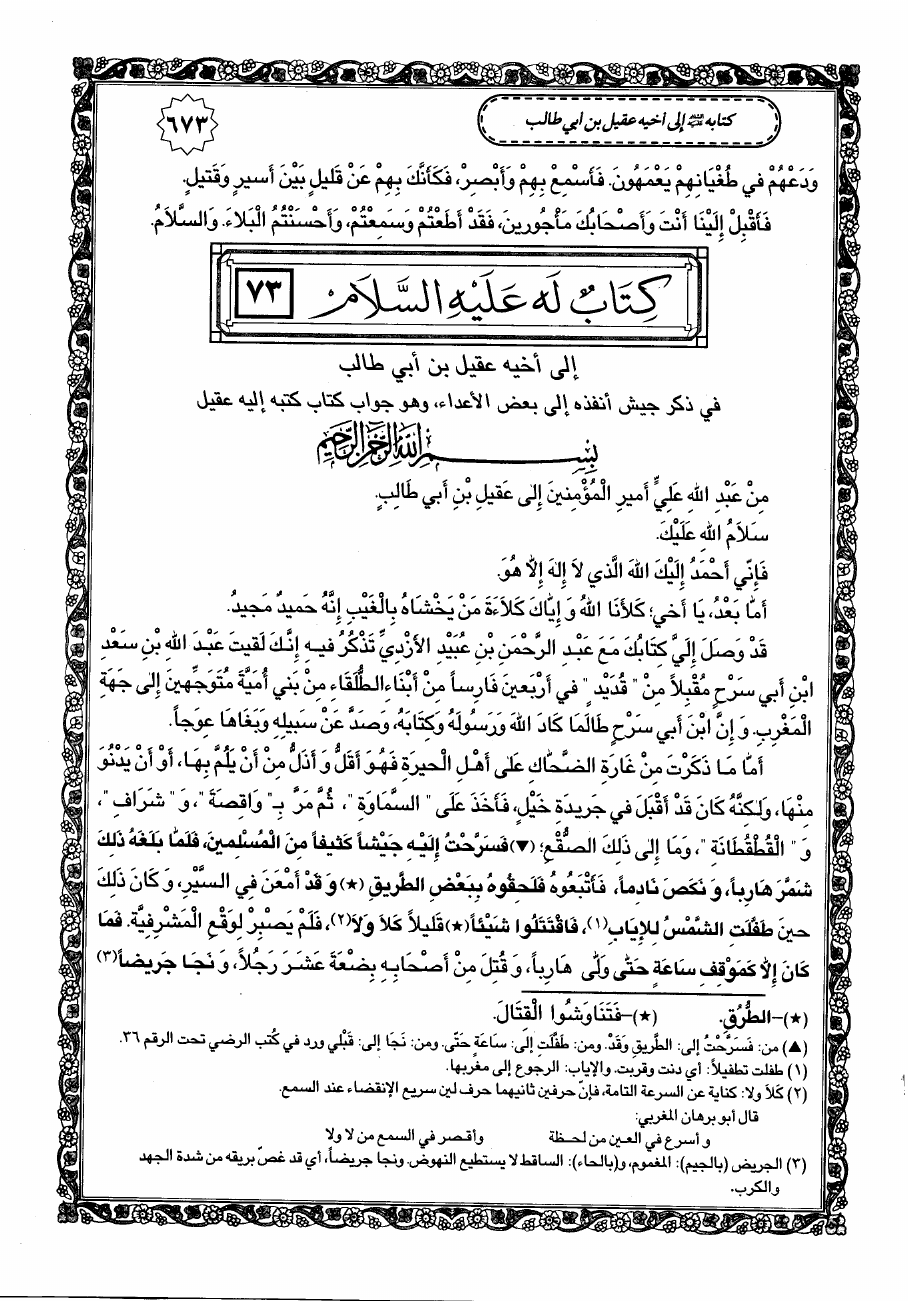 كتابه عليه السلام إلى أخيه عقيل بن أبي طالب
٦٧٣
وَدَعْهُمْ في طُغْيَانِهِمْ يَعْمَهُونَ. فَأَسْمِعْ بِهِمْ وَأَبْصِرْ، فَكَأَنَّكَ بِهِمْ عَنْ قَليلٍ بَيْنَ أَسيرٍ وَقَتيلٍ.
فَأَقْبِلْ إِلَيْنَا أَنْتَ وَأَصْحَابُكَ مَأْجُورينَ، فَقَدْ أَطَعْتُمْ وَسَمِعْتُمْ، وَأَحْسَنْتُمُ الْبَلاَءَ. وَالسَّلاَمُ.
كِتَابٌ لَه عَلَيْهِ السَّلَام
٧٣
إلى أخيه عقيل بن أبي طالب
في ذكر جيش أنفذه إلى بعض الأعداء، وهو جواب كتاب كتبه إليه عقيل
بِسْمِ اللهِ الرَّحْمٰنِ الرَّحِيمِ
مِنْ عَبْدِ اللهِ عَلِيٍّ أَميرِ الْمُؤْمِنينَ إِلىٰ عَقيلِ بْنِ أَبي طَالِبٍ.
سَلاَمُ اللهِ عَلَيْكَ.
فَإِنّي أَحْمَدُ إِلَيْكَ اللهَ الَّذي لاَ إِلهَ إِلاَّ هُوَ.
أَمَّا بَعْدُ، يَا أَخي؛ كَلأَنَا اللهُ وَ إِيَّاكَ كَلاَءَةَ مَنْ يَخْشَاهُ بِالْغَيْبِ إِنَّهُ حَميدٌ مَجيدٌ.
قَدْ وَصَلَ إِلَيَّ كِتَابُكَ مَعَ عَبْدِ الرَّحْمٰنِ بْنِ عُبَيْدِ الأَزْدِيِّ تَذْكُرُ فيهِ إِنَّكَ لَقيتَ عَبْدَ اللهِ بْنِ سَعْدِ
ابْنِ أَبي سَرْحٍ مُقْبِلاً مِنْ " قُدَيْدٍ " في أَرْبَعينَ فَارِساً مِنْ أَبْنَاءِ الطُّلَقَاءِ مِنْ بَني أُمَيَّةَ مُتَوَجِّهينَ إِلىٰ جَهَةِ
الْمَغْرِبِ. وَ إِنَّ ابْنَ أَبي سَرْحٍ طَالَمَا كَادَ اللهَ وَرَسُولَهُ وَكِتَابَهُ، وَصَدَّ عَنْ سَبيلِهِ وَبَغَاهَا عِوَجاً.
أَمَّا مَا ذَكَرْتَ مِنْ غَارَةِ الضَّحَّاكِ عَلىٰ أَهْلِ الْحيرَةِ فَهُوَ أَقَلُّ وَ أَذَلُّ مِنْ أَنْ يَلُمَّ بِهَا، أَوْ أَنْ يَدْنُوَ
مِنْهَا، وَلٰكِنَّهُ كَانَ قَدْ أَقْبَلَ في جَريدَةِ خَيْلٍ، فَأَخَذَ عَلَى " السَّمَاوَةِ "، ثُمَّ مَرَّ بِـ " وَاقِصَةَ "، وَ " شَرَافِ "،
وَ " الْقُطْقُطَانَةِ "، وَمَا إِلىٰ ذَلِكَ الصُّقْعِ؛ (▼) فَسَرَّحْتُ إِلَيْهِ جَيْشاً كَثيفاً مِنَ الْمُسْلِمينَ، فَلَمَّا بَلَغَهُ ذَلِكَ
شَمَّرَ هَارِباً، وَ نَكَصَ نَادِماً، فَأَتْبَعُوهُ فَلَحِقُوهُ بِبَعْضِ الطَّريقِ (★) وَ قَدْ أَمْعَنَ فِي السَّيْرِ، وَ كَانَ ذَلِكَ
حينَ طَفَّلَتِ الشَّمْسُ لِلإِيَابِ(١)، فَاقْتَتَلُوا شَيْئاً(★) قَليلاً كَلاَ وَلاَ(٢)، فَلَمْ يَصْبِرْ لِوَقْعِ الْمَشْرَفِيَّةِ. فَمَا
كَانَ إِلاَّ كَمَوْقِفِ سَاعَةٍ حَتّٰى وَلّٰى هَارِباً، وَ قُتِلَ مِنْ أَصْحَابِهِ بِضْعَةَ عَشَرَ رَجُلاً، وَ نَجَا جَريضاً(٣)
(★)-الطُّرُقِ. (★)-فَتَنَاوَشُوا الْقِتَالَ.
(▲) من: فَسَرَّحْتُ إلى: الطَّريقِ وَقَدْ. ومن: طَفَّلَتِ إلى: سَاعَةٍ حَتّى. ومن: نَجَا إلى: قَبْلي ورد في كُتب الرضي تحت الرقم ٣٦.
(١) طفلت تطفيلاً: أي دنت وقربت. والإياب: الرجوع إلى مغربها.
(٢) كَلاَ ولا: كناية عن السرعة التامة، فإنّ حرفين ثانيهما حرف لين سريع الإنقضاء عند السمع.
قال أبو برهان المغربي:
و أسرع في العين من لحظة وأقصر في السمع من لا ولا
(٣) الجريض (بالجيم): المغموم، و(بالحاء): الساقط لا يستطيع النهوض. ونجا جريضاً، أي قد غصّ بريقه من شدة الجهد
والكرب.